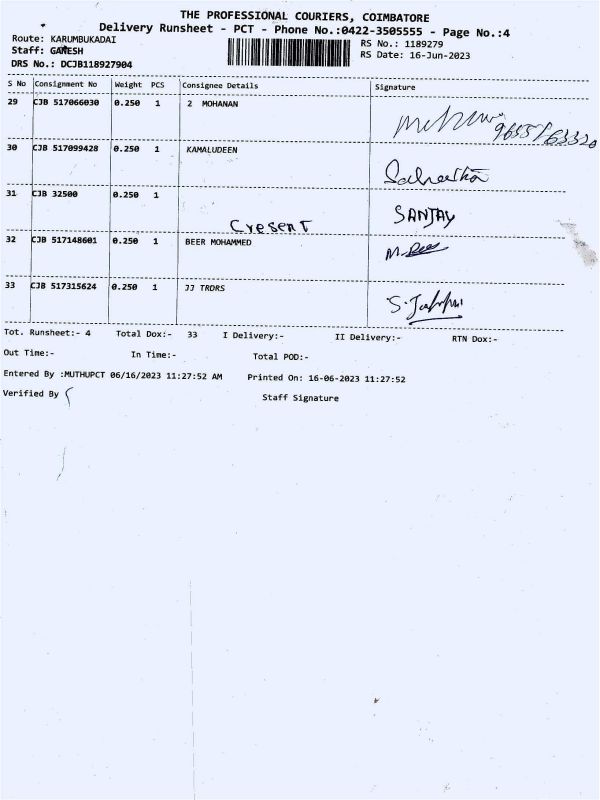 THE PROFESSIONAL COURIERS, COIMBATORE
Delivery Runsheet - PCT - Phone No.:0422-3505555 - Page No.:4
Route: KARUMBUKADAI
RS No.: 1189279
Staff: GANESH
RS Date: 16-Jun-2023
DRS No.: DCJB118927904
S No Consignment No Weight PCS Consignee Details Signature
29 CJB 517066030 0.250 1 2 MOHANAN
30 CJB 517099428 0.250 1 KAMALUDEEN
31 CJB 32500 0.250 1 SANJAY
Cresent
32 CJB 517148601 0.250 1 BEER MOHAMMED
33 CJB 517315624 0.250 1 JJ TRDRS
Tot. Runsheet:- 4 Total Dox:- 33 I Delivery:- II Delivery:- RTN Dox:-
Out Time:- In Time:- Total POD:-
Entered By :MUTHUPCT 06/16/2023 11:27:52 AM Printed On: 16-06-2023 11:27:52
Verified By Staff Signature